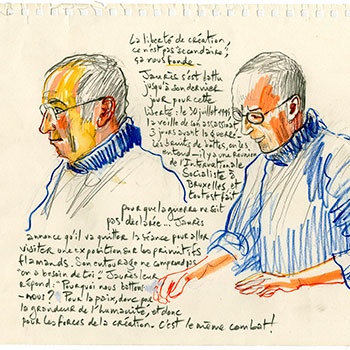 La liberté de création,
ce n'est pas secondaire,
ça nous fonde -
Jaurès s'est battu
jusqu'à son dernier
jour pour cette
liberté : le 30 juillet
la veille de son assassinat
3 jours avant la guerre
Les bruits de bottes, on les
entend - il y a une réunion
de l'Internationale
Socialiste à
Bruxelles et
tout est fait
pour que la guerre ne soit
pas déclarée ... Jaurès
annonce qu'il va quitter la séance pour aller
visiter une exposition sur les primitifs
flamands. Son entourage ne comprend pas
"on a besoin de toi" Jaurès leur
répond : "Pourquoi nous battons
-nous ? Pour la paix, donc par
la grandeur de l'humanité, et donc
pour les forces de la création. C'est le même combat !